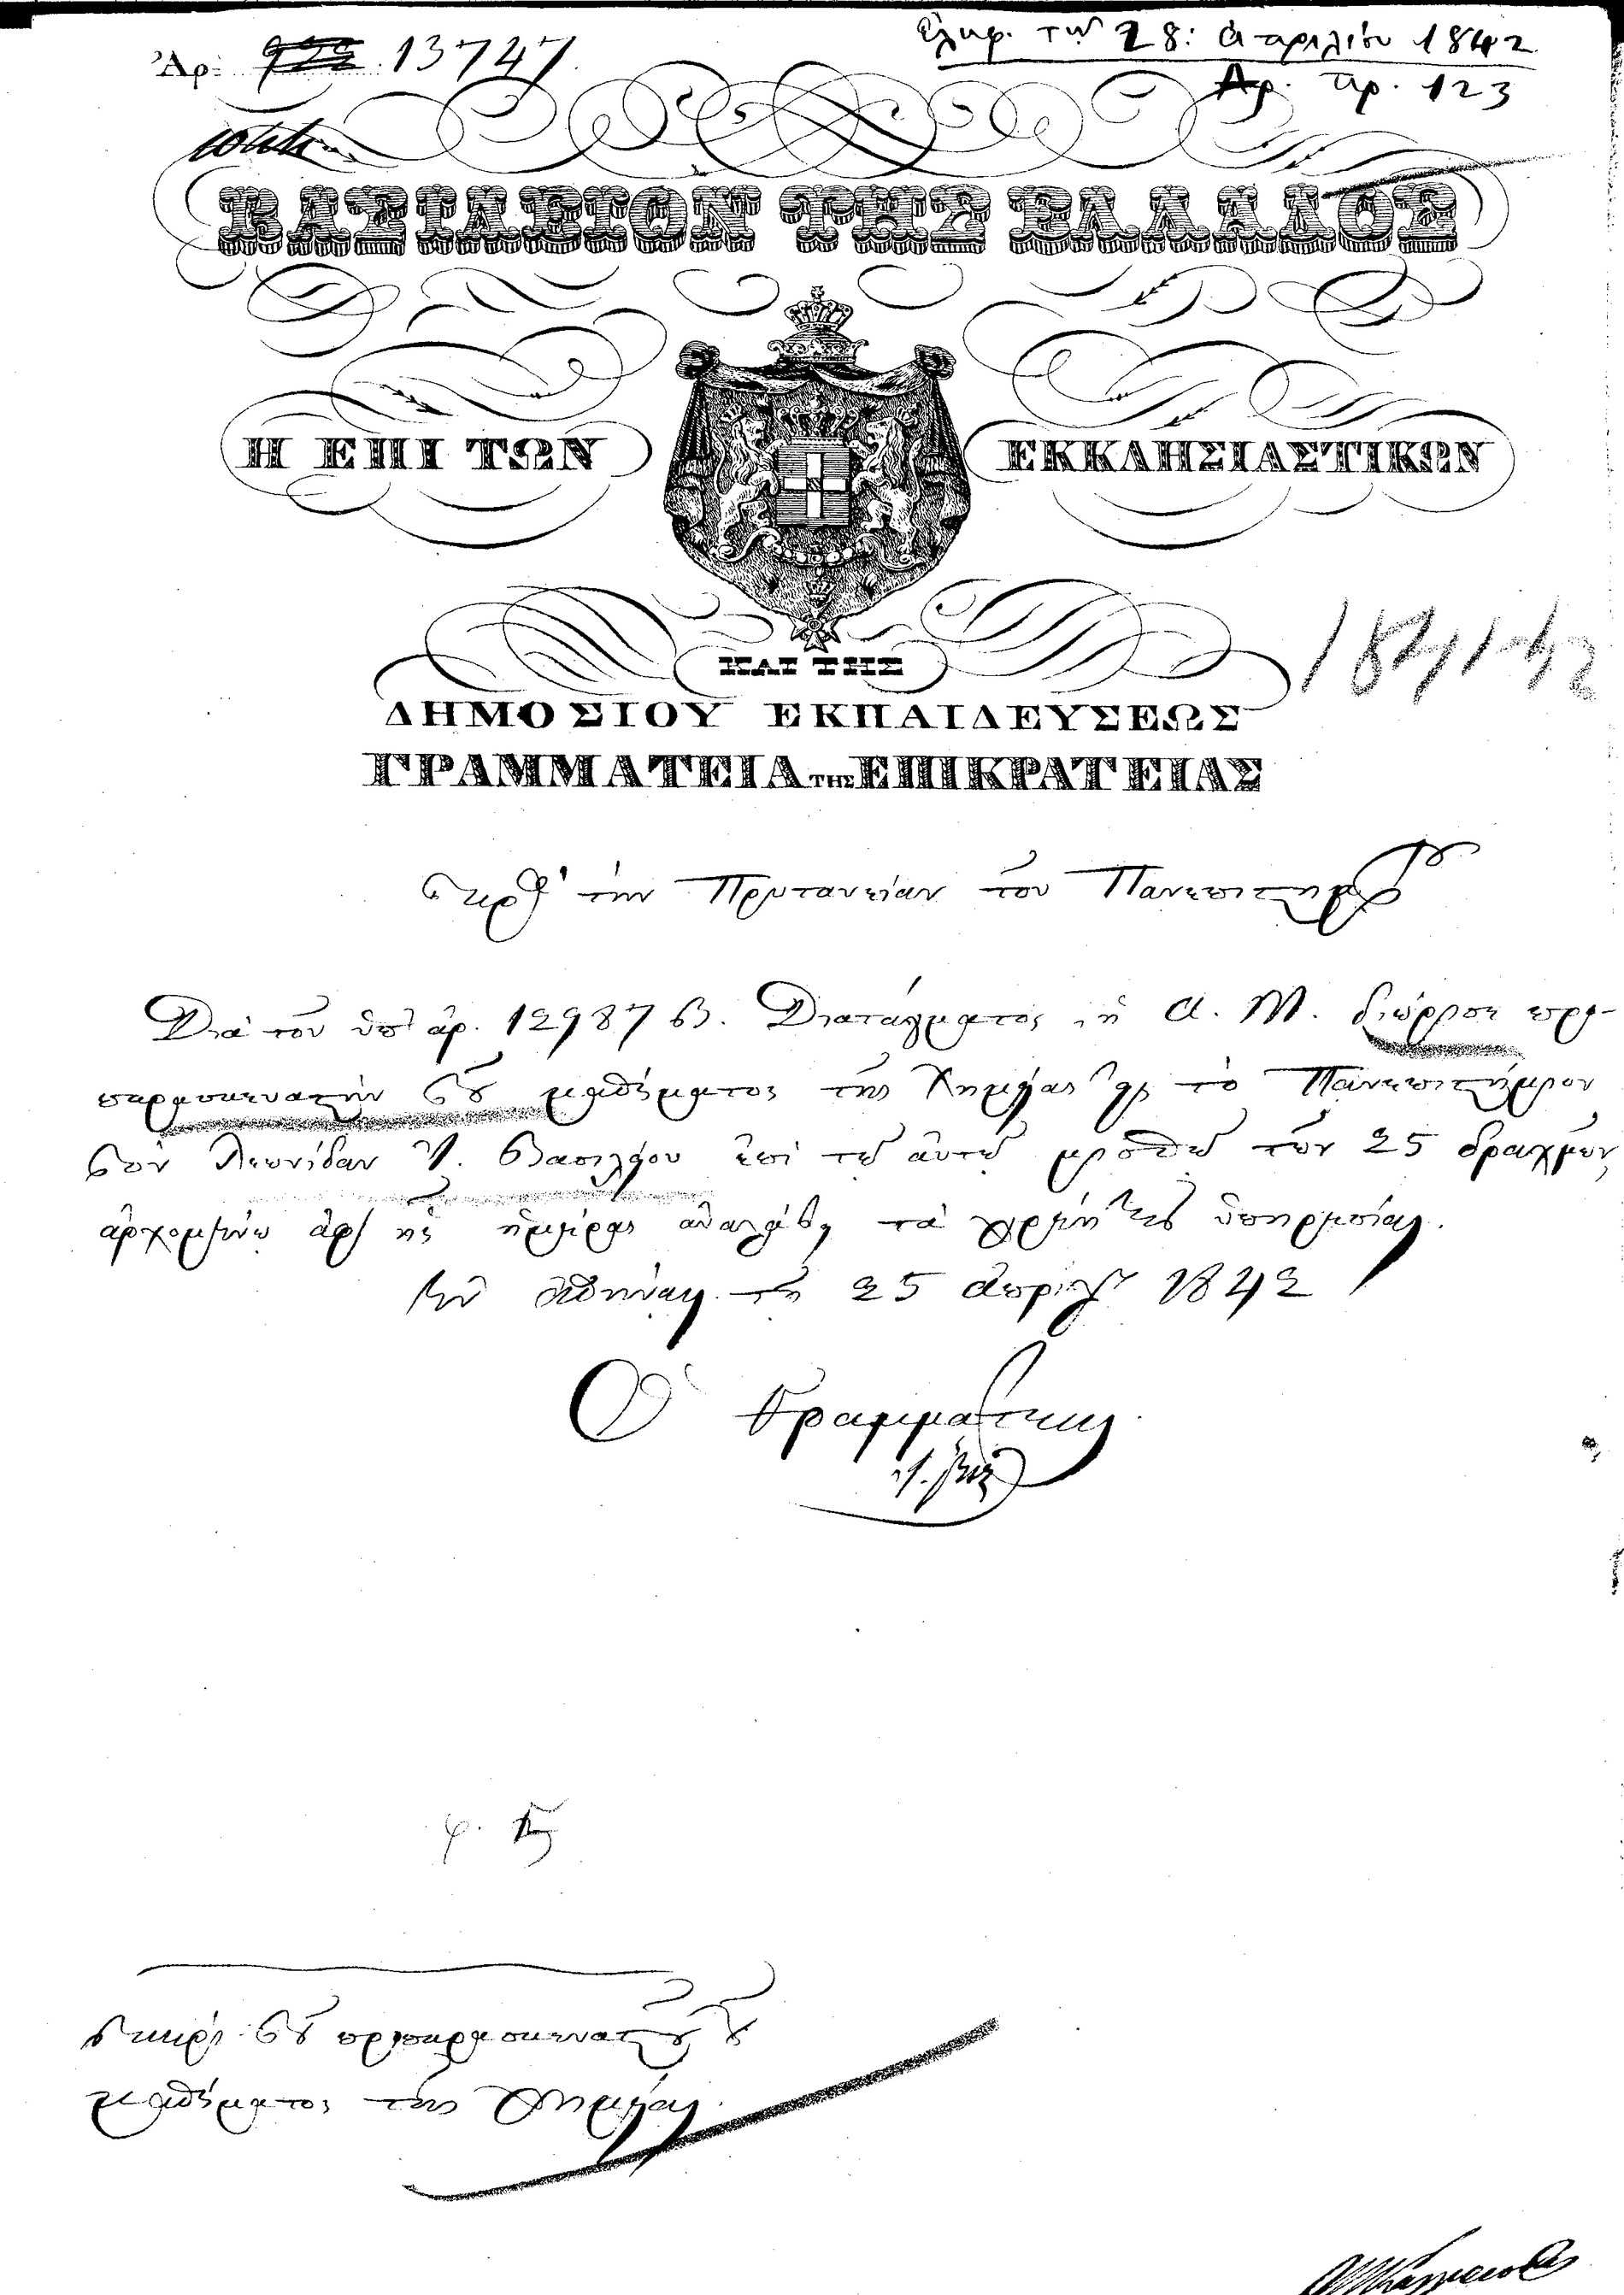 Ἀρ: 13747
ἐλήφ. τὴν 28: ἀπριλίου 1842
Ἀρ. πρ. 123
ΒΑΣΙΛΕΙΟΝ ΤΗΣ ΕΛΛΑΔΟΣ
Η ΕΠΙ ΤΩΝ ΕΚΚΛΗΣΙΑΣΤΙΚΩΝ
1841-42
ΚΑΙ ΤΗΣ
ΔΗΜΟΣΙΟΥ ΕΚΠΑΙΔΕΥΣΕΩΣ
ΓΡΑΜΜΑΤΕΙΑ ΤΗΣ ΕΠΙΚΡΑΤΕΙΑΣ
Πρὸς τὴν Πρυτανείαν τοῦ Πανεπιστημίου
Διὰ τοῦ ὑπ' ἀρ. 12987 Β. Διατάγματος ἡ Α. Μ. διώρισε προ-
παρασκευαστὴν τοῦ μαθήματος τῆς Χημείας εἰς τὸ Πανεπιστήμιον
τὸν Λεωνίδαν Βασιλείου ἐπὶ τῷ αὐτῷ μισθῷ τῶν 25 δραχμῶν
ἀρχομένῳ ἀφ' ἧς ἡμέρας ἀναλάβῃ τὰ χρέη τῆς ὑπηρεσίας.
Ἐν Ἀθήναις τῇ 25 Ἀπριλ. 1842
Ὁ Γραμματεὺς
περὶ τοῦ προπαρασκευαστοῦ τοῦ
μαθήματος τῆς Χημείας.